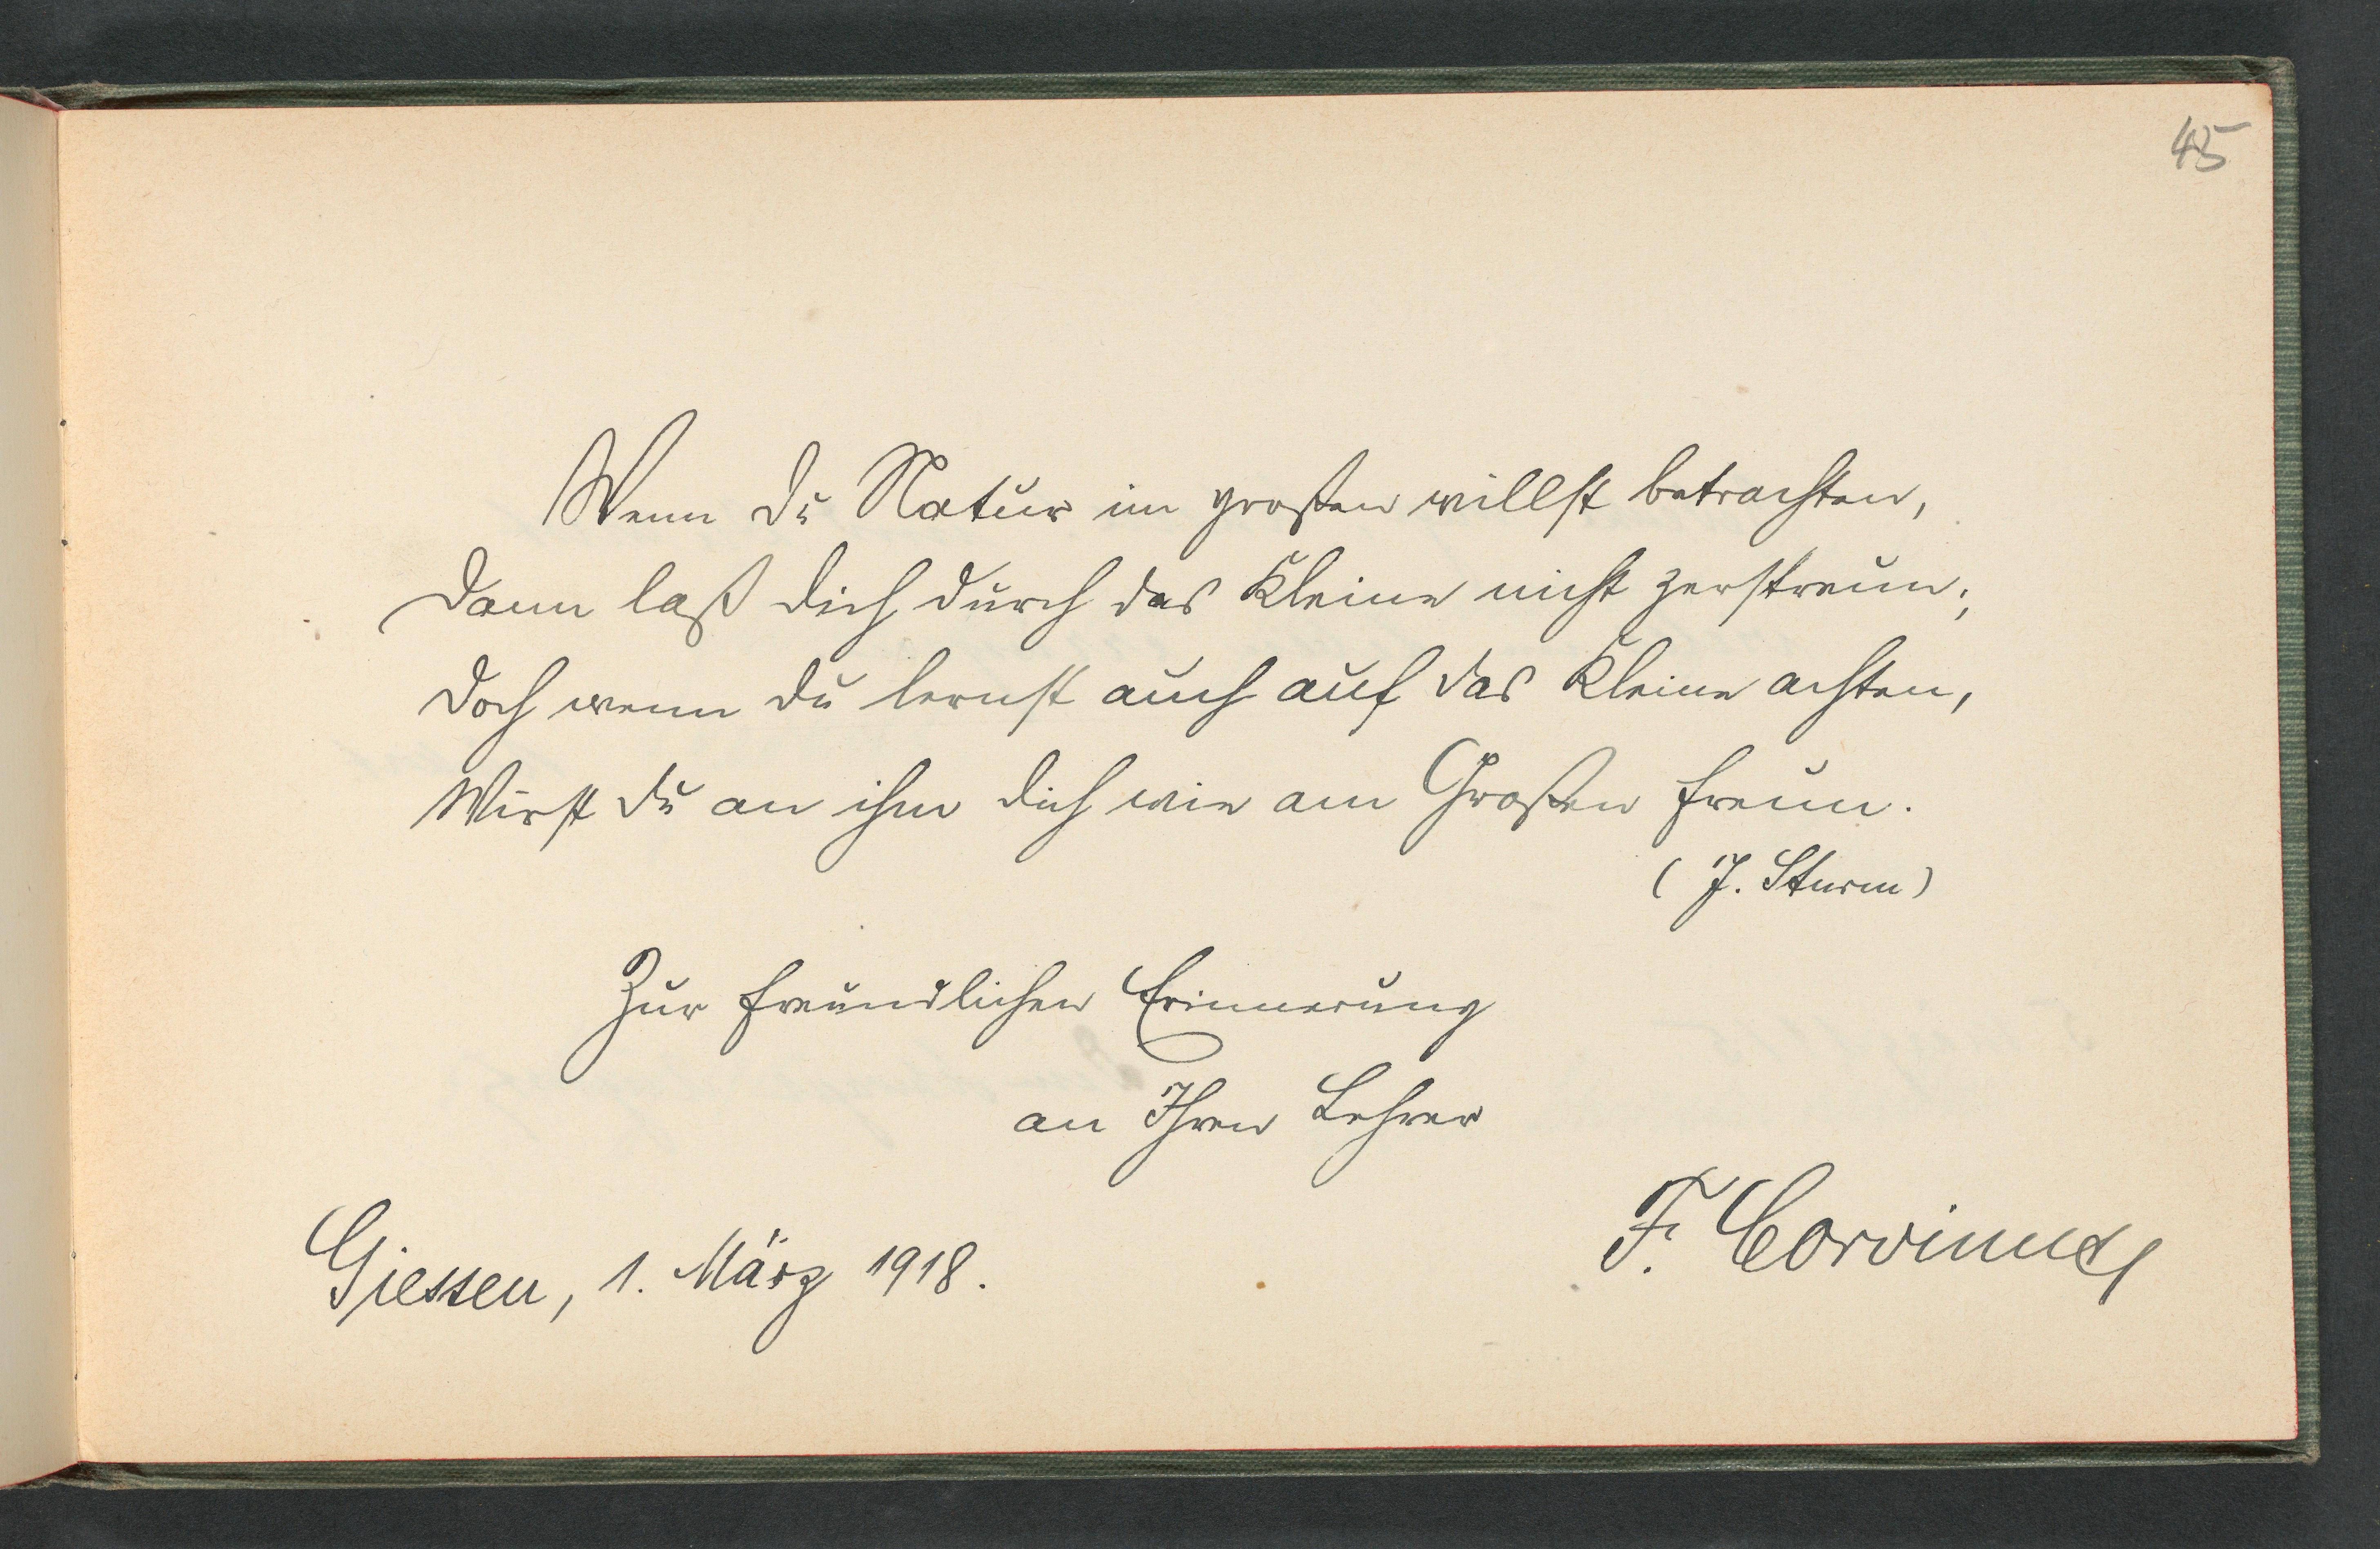 45
Wenn du Natur im großen willst betrachten,
Dann laß dich durch das Kleine nicht zerstreun;
Doch wenn du lernst auch auf das Kleine achten,
Wirst du an ihm dich wie am Großen freun.
(J. Sturm)
Zur freundlichen Erinnerung
an Ihren Lehrer
F. Corvinus
Giessen, 1. März 1918.